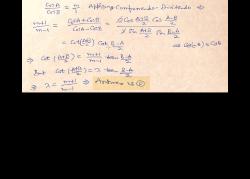 CosA/CosB = m/1 Applying Componendo-Dividendo ⇒
m+1/m-1 = CosA+CosB/CosA-CosB = 2 Cos A+B/2 Cos A-B/2 / 2 Sin A+B/2 Sin B-A/2
= Cot(A+B/2) Cot B-A/2
⇒ Cot (A+B/2) = m+1/m-1 tan B-A/2
But Cot (A+B/2) = λ tan B-A/2
⇒ λ = m+1/m-1 ⇒ Answer is